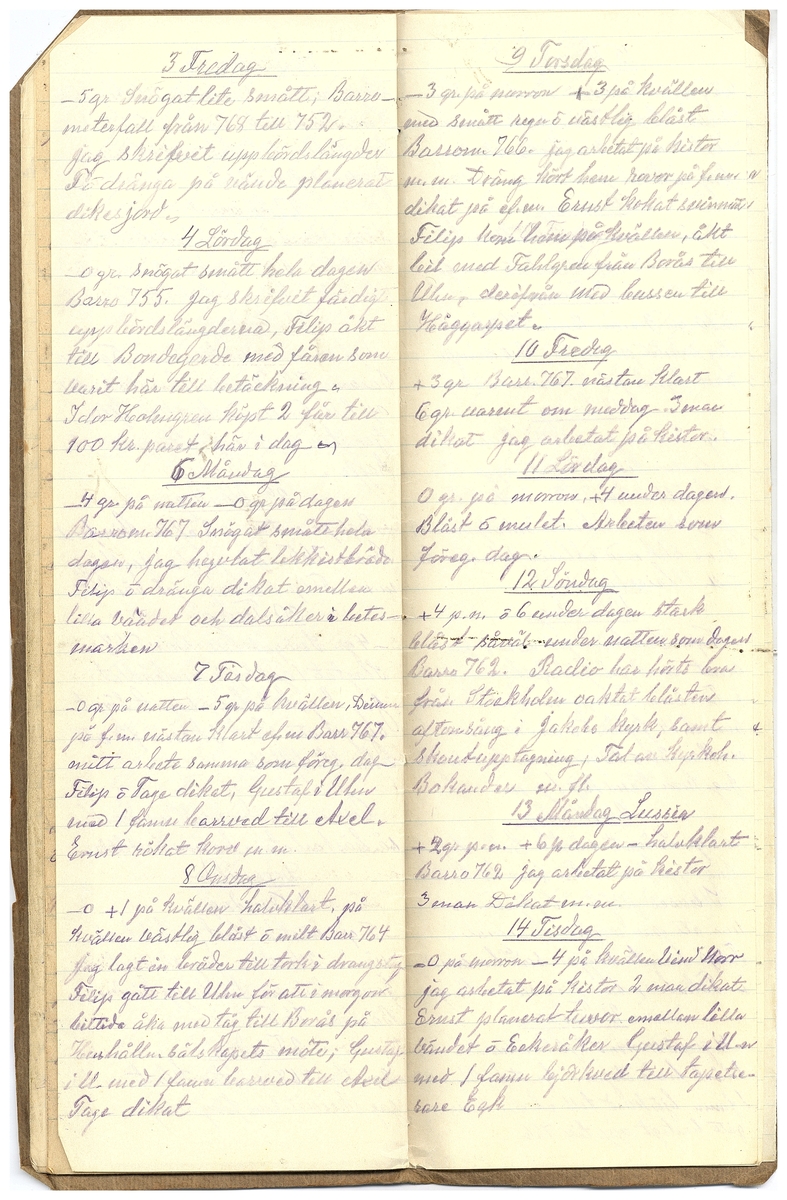 3 Fredag
–5 gr Snögat lite smått, Barro-
meterfall från 768 till 752.
jag skrifvit uppbördslängder
på vände planerat
dikesjord.
4 Lördag
–0 gr. snögat smått hela dagen
Barro 755. Jag skrifvit färdigt
uppbördslängderna, Filip åkt
till Bondegerde med fåren som
varit här till betäckning.
Idor Holmgren köpt 2 får till
100 kr. paret, här i dag
6 Måndag
–4 gr på natten –0 gr på dagen
Barrom 767 Snögat smått hela
dagen, jag hyvlat likkistbräder
Filip ö dränga dikat emellan
lilla vändet och dalsåker i betes-
marken
7 Tisdag
–0 gr på natten –5 gr på kvällen, Dimma
på f.m. nästan klart ef.m Barr 767.
mitt arbete samma som föreg. dag
Filip ö Tage dikat, Gustaf i Ulvn
med 1 famn barrved till Axel.
Ernst rökat korv m.m.
8 Onsdag
–0 +1 på kvällen halvklart, på
kvällen västlig blåst ö milt Barr 764
Jag lagt in bräder till tork i drangstug
Filip gått till Ulvn för att i morgon
bittida åka med tåg till Borås på
Hushålln. sälskapets möte; Gustaf
i U. med 1 famn barrved till Axel
Tage dikat
9 Torsdag
–3 gr. på morron +3 på kvällen
med smått regn ö västlig blåst
Barrom. 766. jag arbetat på kistor
m.m. Dräng kört hem rovor på f.m.
dikat på ef.m. Ernst kokat
Filip kom hem på kvällen, åkt
bil med Fahlgren från Borås till
Ulvn, derifrån med bussen till
10 Fredag
+3 gr Barr. 767. nästan klart
6 gr varmt om middag. 3 man
dikat jag arbetat på kistor.
11 Lördag
0 gr. på morron, +4 under dagen.
Blåst ö mulet. Arbeten som
föreg. dag.
12 Söndag
+4 p.m. ö 6 under dagen stark
blåst såväl under natten som dagen
Barro 762. Radio har hörts bra
från Stockholm oaktat blåsten
aftonsång i Jakobs kyrk, samt
skoutupptagning, Tal av kyrkoh.
Bohander m.fl.
13 Måndag Lussia
+2 gr p.m. +6 p dagen – halvklart
Barro 762 jag arbetat på kistor
3 man Dikat m.m.
14 Tisdag
–0 på morron –4 på kvällen Vind Norr
jag arbetat på kistor 2 man dikat
Ernst planerat emellan lilla
vändet ö Eckeråker Gustaf i Ulvn
med 1 famn björkved till tapetse-
rare Egk